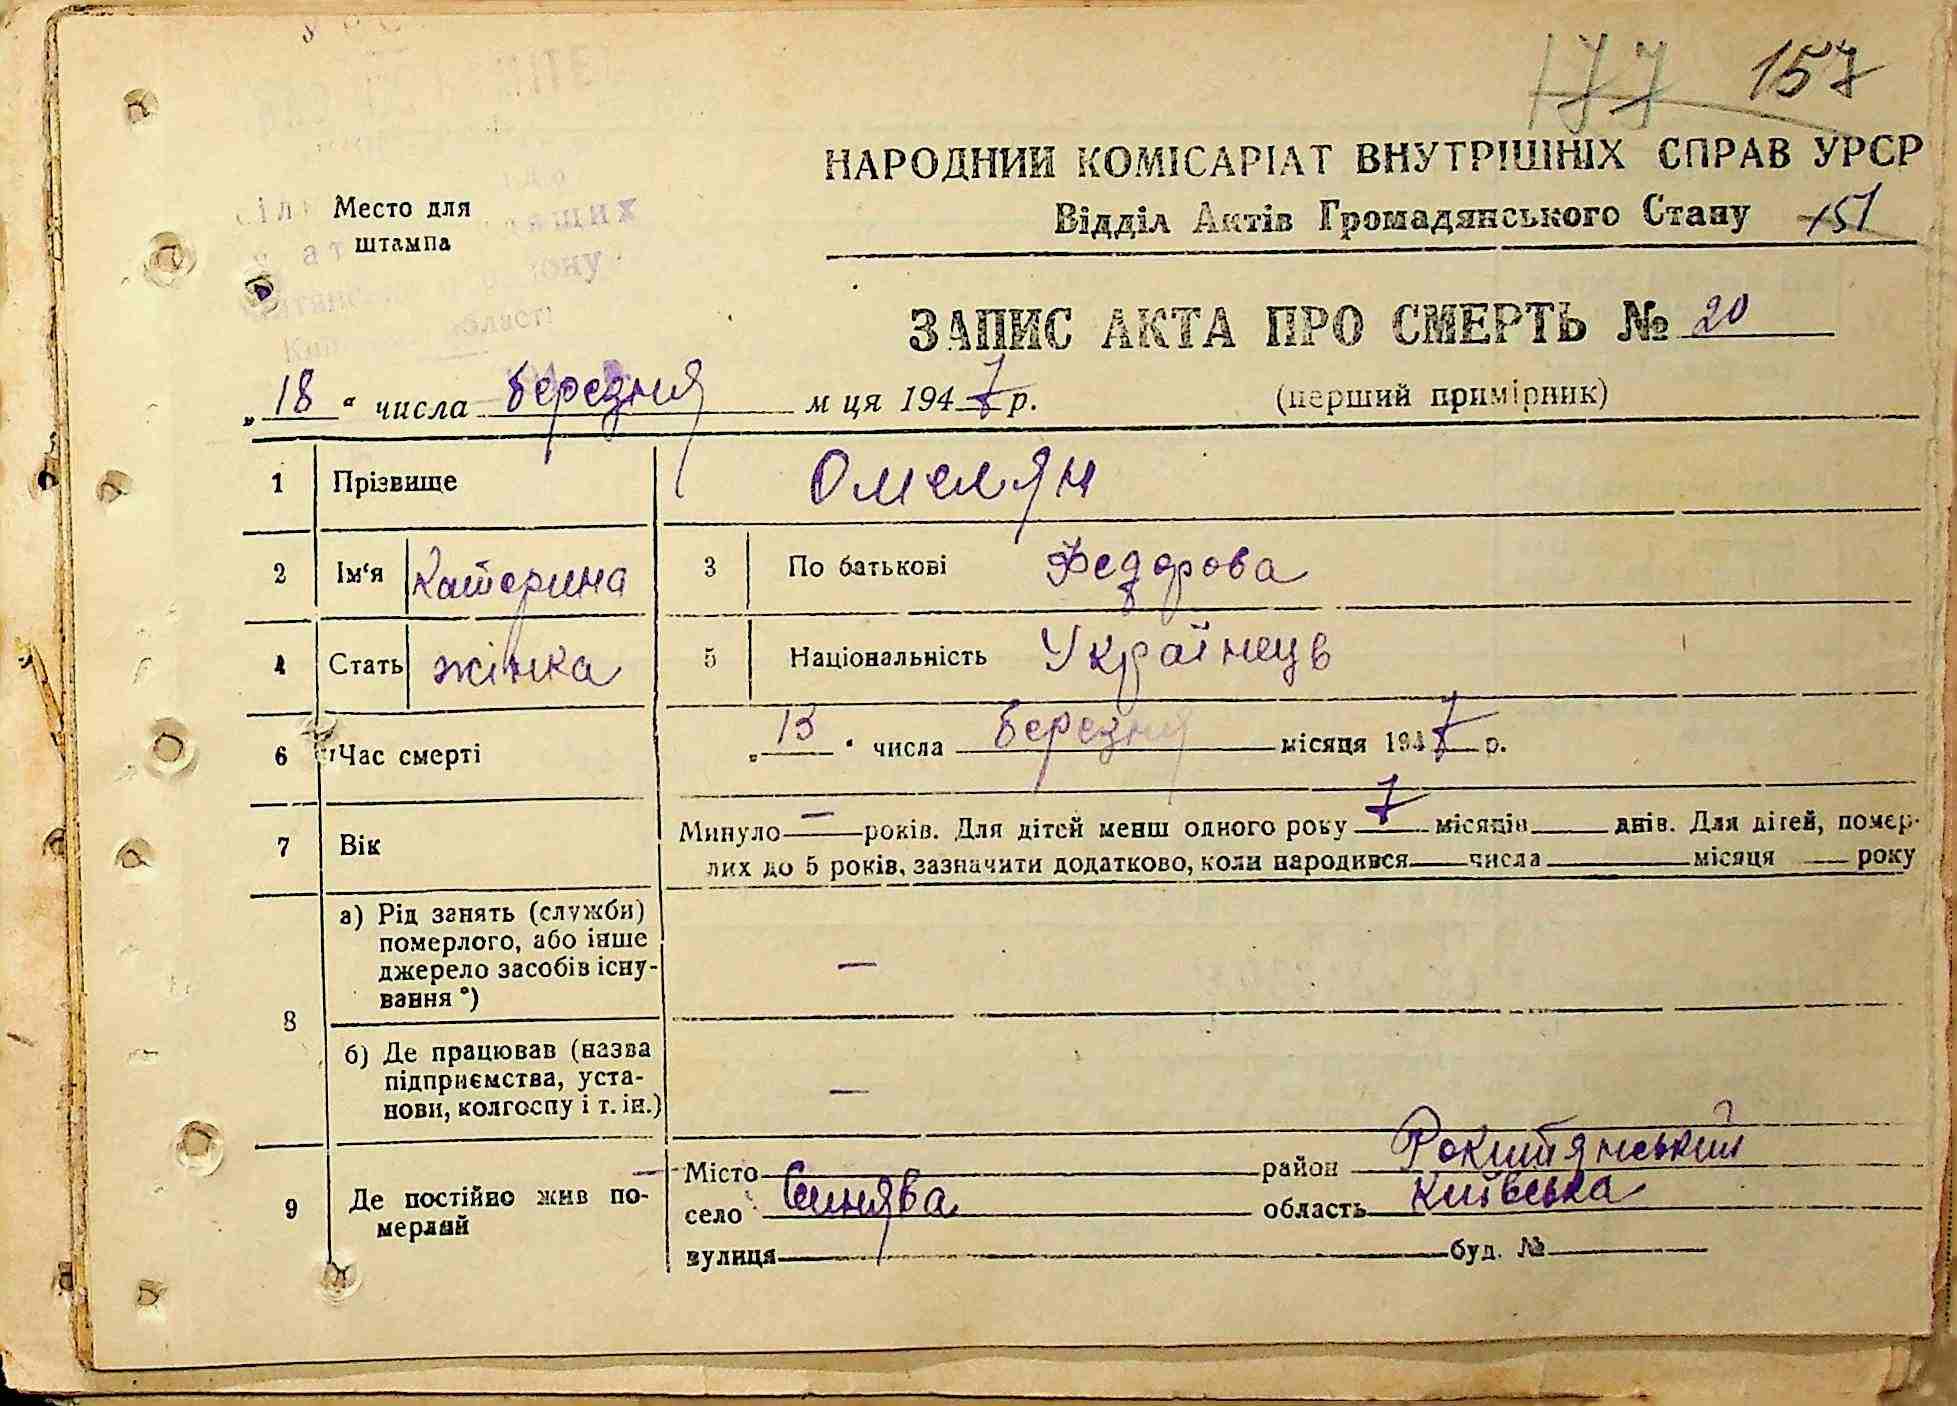 177 157
НАРОДНИЙ КОМІСАРІАТ ВНУТРІШНІХ СПРАВ УРСР
Відділ Актів Громадянського Стану 151
Место для
штампа
ЗАПИС АКТА ПРО СМЕРТЬ № 20
„18“ числа березня м ця 1947 р. (перший примірник)
1 Прізвище Омелян
2 Ім'я Катерина 3 По батькові Федорова
4 Стать жінка 5 Національність Українець
6 Час смерті „13“ числа березня місяця 1947 р.
7 Вік Минуло — років. Для дітей менш одного року 7 місяців днів. Для дітей, помер-
лих до 5 років, зазначити додатково, коли народився числа місяця року
8 а) Рід занять (служби)
померлого, або інше
джерело засобів існу-
вання *) —
б) Де працював (назва
підприємства, уста-
нови, колгоспу і т. ін.) —
9 Де постійно жив по-
мерлий
— Місто район Рокитянський
село Синява область Київська
вулиця буд. №